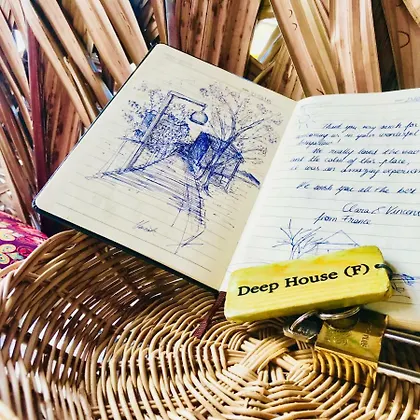 Thank you very much for
in your wonderful
We really loved the
and the calm of this place.
it was an amazing experience
We wish you all the best
Clara & Vincent
from France
Deep House (F)